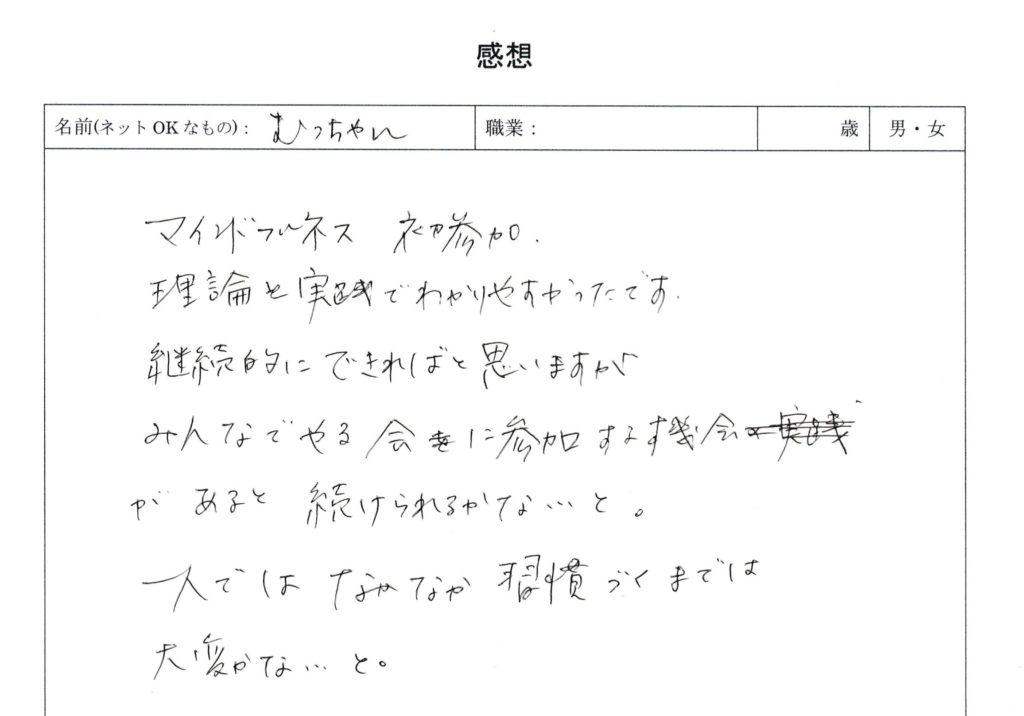 感想
名前(ネット OK なもの)： むっちゃん 職業： 歳 男・女
マインドフルネス 初参加.
理論と実践でわかりやすかったです.
継続的にできればと思いますが
みんなでやる会に参加する機会
があると 続けられるかな…と。
一人では なかなか 習慣づくまでは
大変かな…と。